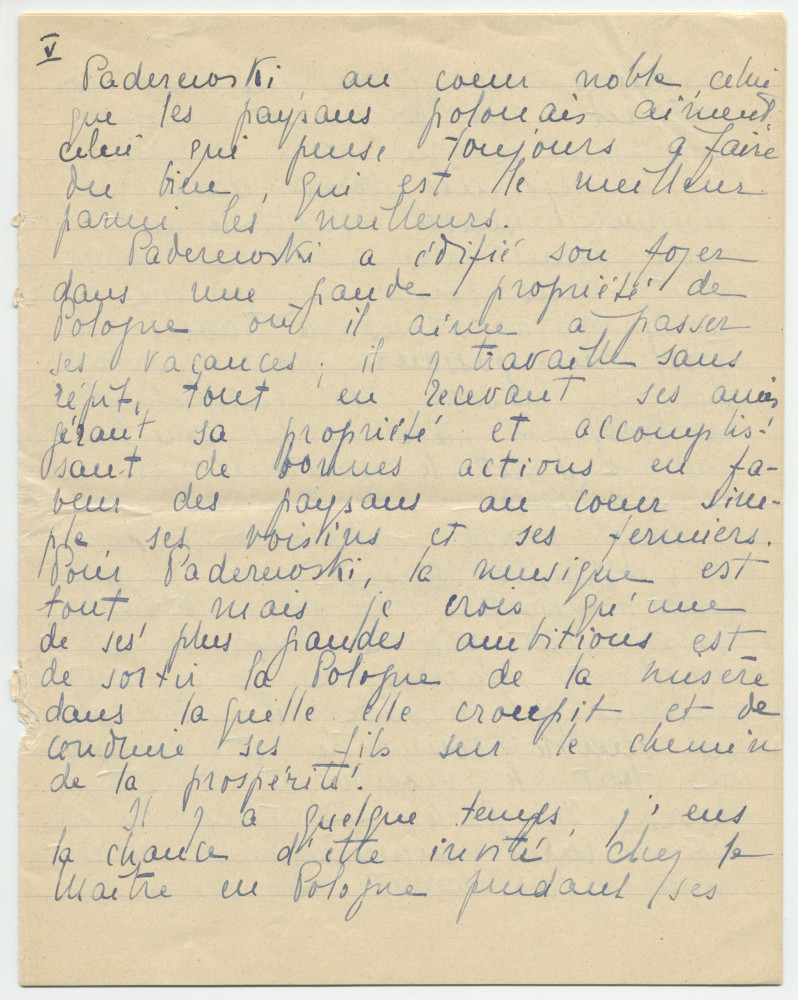 V
Paderewski, au coeur noble celui
que les paysans polonais aiment
celui qui pense toujours à faire
du bien, qui est le meilleur
parmi les meilleurs.
Paderewski a édifié son foyer
dans une grande propriété de
Pologne où il aime à passer
ses vacances, il y travaille sans
répit, tout en recevant ses amis
gérant sa propriété et accomplis-
sant de bonnes actions en fa-
veur des paysans au coeur sim-
ple ses voisins et ses fermiers.
Pour Paderewski, la musique est
tout mais je crois qu'une
de ses plus grandes ambitions est
de sortir la Pologne de la misère
dans laquelle elle croupit et de
conduire ses fils sur le chemin
de la prospérité.
Il y a quelque temps, j'eus
la chance d'être invité chez le
Maître en Pologne pendant ses